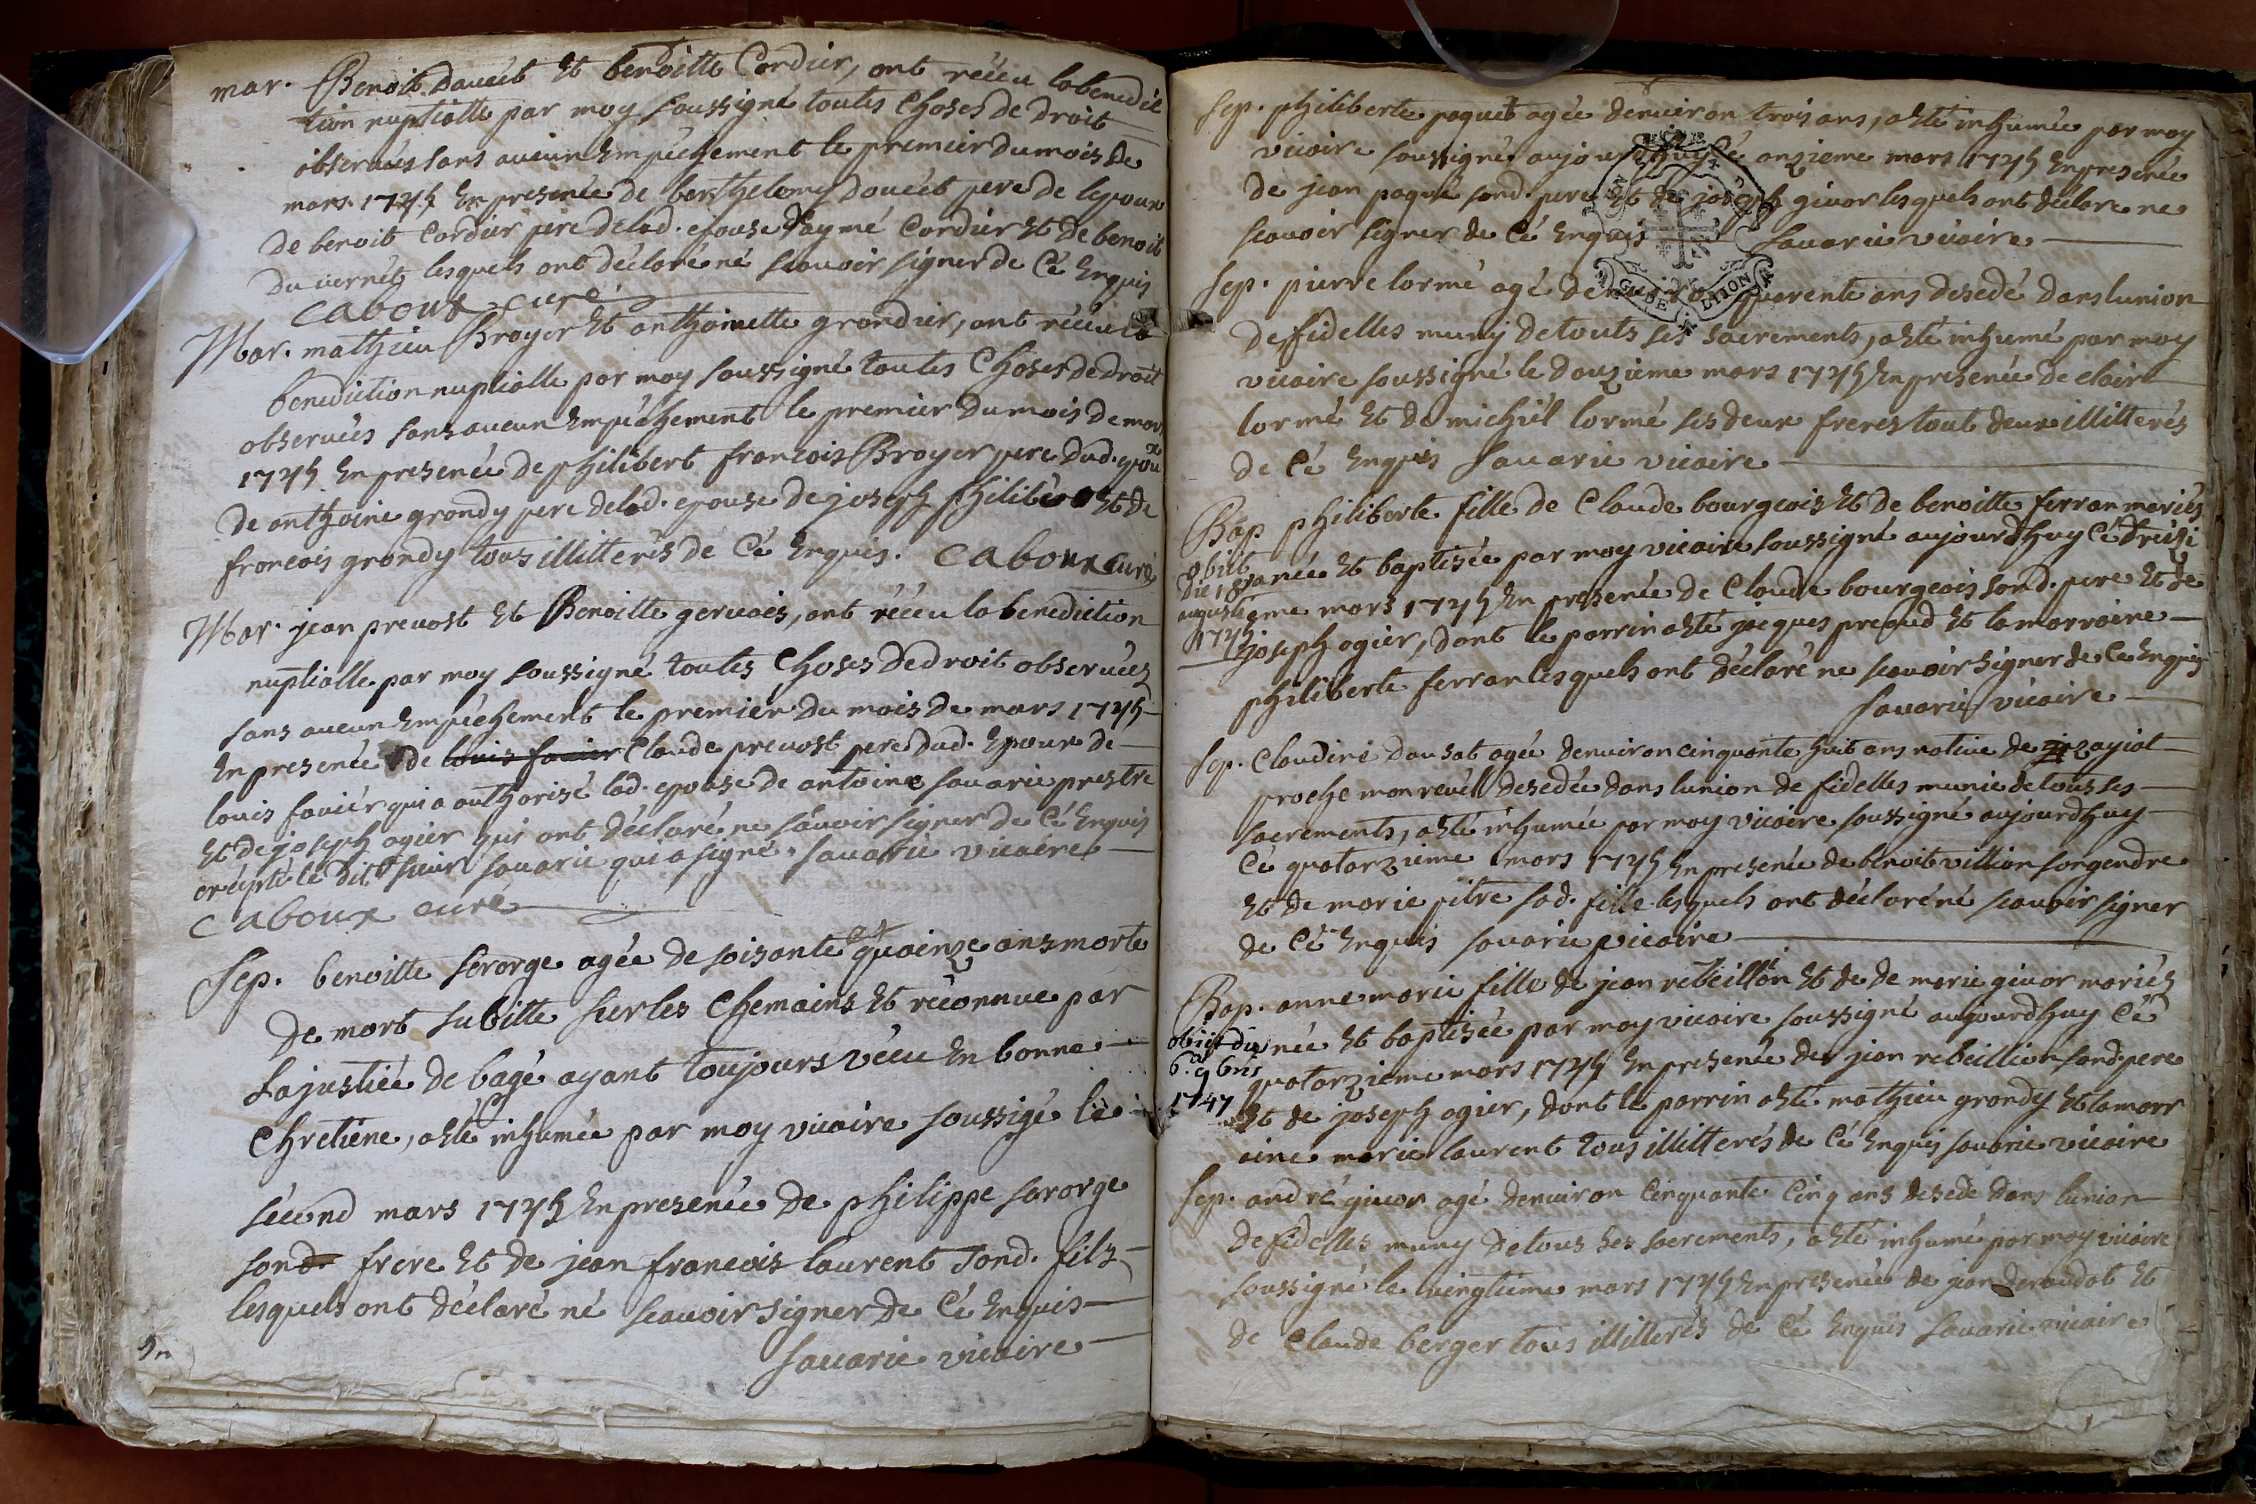 mar. Benoit Doucet Et benoitte Cordier, ont récéu la bénédic
tion nuptialle par moy soussigné toutes Choses de droit
observées sans aucun Empéchement le premier du mois de
mars 1745 En presence de berthelemy doucet pere de lepoux
de benoit Cordier pere de lad. epouse daymé Cordier Et de benoit
du vernét lesquels ont déclaré né scavoir signer de Cé Enquis
Caboux curé
Mar. mathieu Broyer Et anthoinette grandier, ont récéu la
benediction nuptialle par moy soussigné toutes Choses de droit
observées sans aucun Empéchement le premier du mois de mars
1745 En presence de philibert francois Broyer pere dud. epoux
de anthoine grandy pere de lad. epouse de joseph philibert Et de
francois grandy tous illitterés de Cé Enquis. Caboux curé
Mar. jean prevost Et Benoitte gervais, ont récéu la benediction
nuptialle par moy soussigné toutes Choses de droit observées
sans aucun Empéchement le premiér du mois de mars 1745
En presence de louis favier Claude prevost pere dud. Epoux de
louis faviér qui a authorisé lad. epouse de antoine savarie prestre
Et de joseph ogier qui ont déclaré ne savoir signer de Cé Enquis
excépté le dit sieur savarie qui a signé. savarie vicaire
Caboux curé
Sep. benoitte serorge agée de soisante et quainze ans morte
de mort subitte sur les Chemains Et réconnue par
la justicé de bagé ayant toujours vécu En bonne
Chretiéne, a Eté inhumée par moy vicaire soussigé le
sécond mars 1745 En presence de philippe sarorge
son frere Et de jean francois laurent sond. fils
lesquels ont déclaré né scavoir signer de Cé Enquis
savarie vicaire
Sep. philiberte paquet agée denviron trois ans, a Eté inhumée par moy
vicaire soussigné aujourdhuy cé onzieme mars 1745 En presence
de jean paquet sond. pere Et de joseph givor lesquels ont déclaré ne
scavoir signer de Cé Enquis savarie vicaire
Sep. pierre lormé agé denviron quarente ans desedé dans lunion
de fidelles muny de touts ses sacrements, a Eté inhumé par moy
vicaire soussigné le douzieme mars 1745 En presence de clair
lormé Et de michiél lormé ses deux freres tout deux illitterés
de Cé Enquis savarie vicaire
Bap philiberte fille de Claude bourgeois Et de benoitte ferran mariés
obiit
née Et baptisée par moy vicaire soussigné aujourdhuy Cé treizi
die 18a
augusti
éme mars 1745 En presence de Claude bourgeois sond. pere Et de
174
joseph ogier, dont le parrin a Eté jacques preaud Et la marraine
philiberte ferran lesquels ont déclaré ne scavoir signer de Cé Enquis
savarie vicaire
Sep. Claudine dausat agée denviron cinquante huit ans native de jazayiat
proche monrevél desedée dans lunion de fidelles munie de tous ses
sacrements, a Eté inhumée par moy vicaire soussigné aujourdhuy
Cé quatorzieme mars 1745 En presence de benoit villion son gendre
Et de marie pitre sad. fille lesquels ont déclaré né scavoir signer
de Cé Enquis savarie vicaire
Bap. anne marie fille de jean rebeillion Et de de marie givor mariés
obiit die
née Et baptisée par moy vicaire soussigné aujourdhuy Cé
6a 9bris
quatorzieme mars 1745 En presence de jean rebeillion sond. pere
1747
Et de joseph ogier, dont le parrin a Eté mathieu grandy Et la marr
aine marie laurent tous illitterés de Cé Enquis savarie vicaire
Sep. andré givor agé denviron Cinquante Cinq ans desedé dans lunion
de fidelles muny de tous ses sacrements, a Eté inhumé par moy vicaire
soussigné le vingtieme mars 1745 En presence de jean deraudat Et
de Claude berger tous illitterés de Cé Enquis savarie vicaire